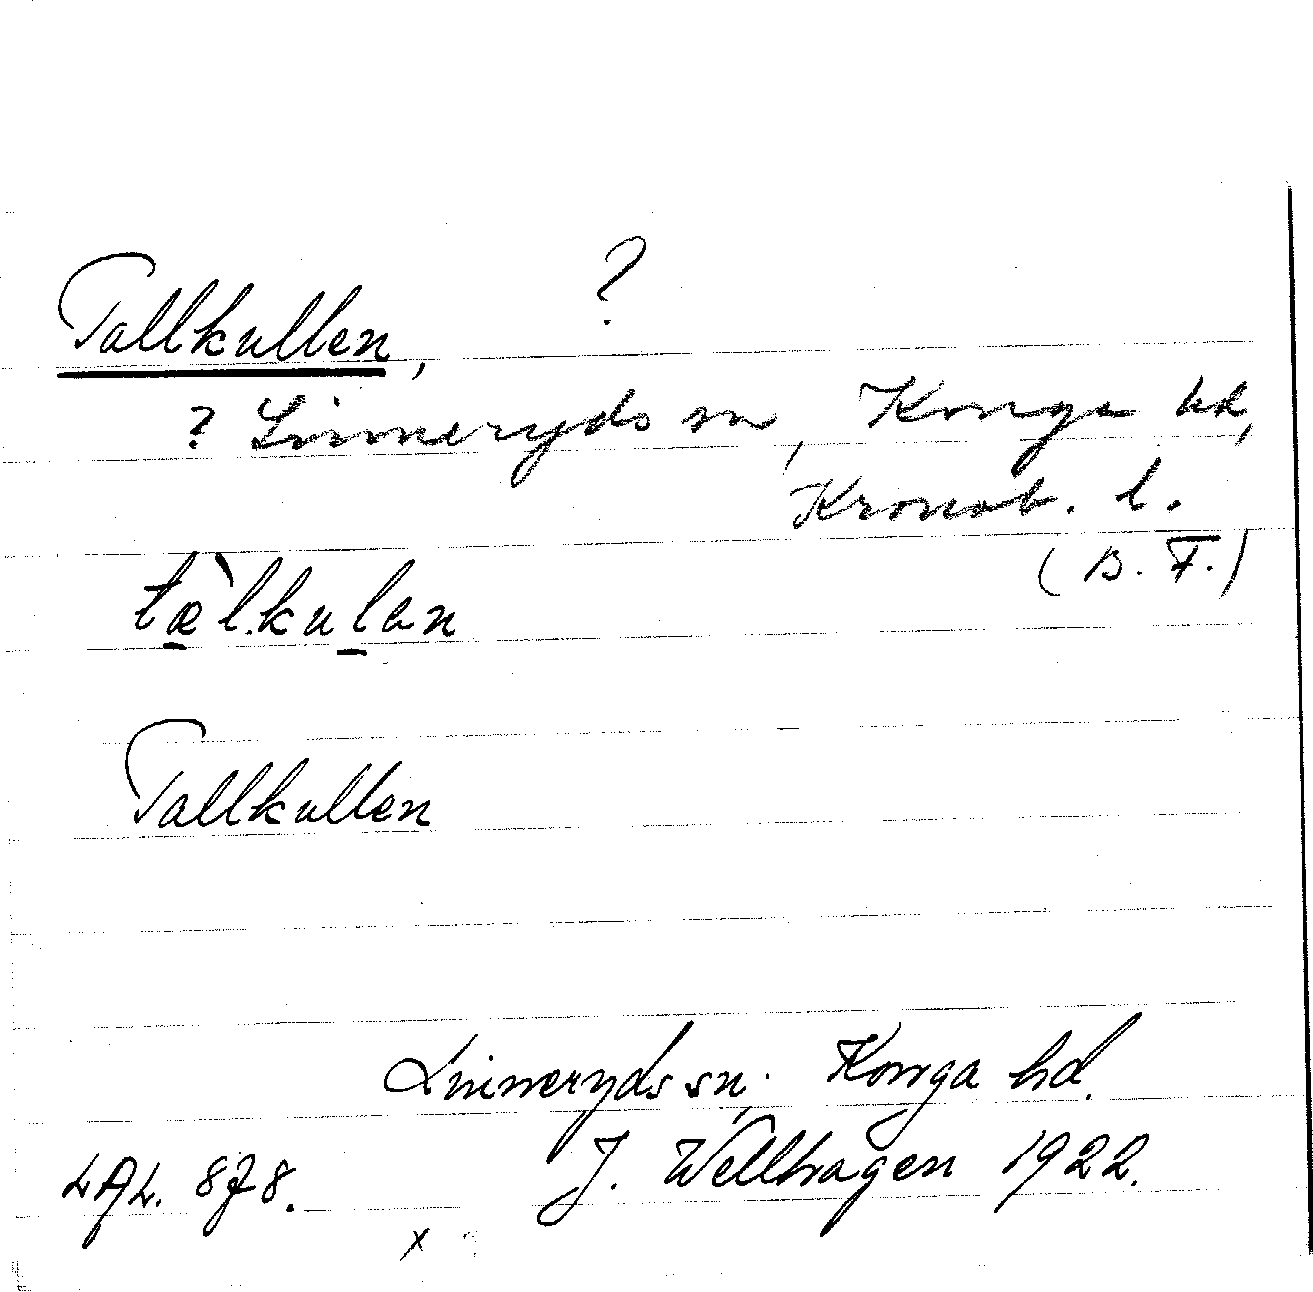 Tallkullen, ?
? Linneryds sn, Konga hd,
Kronob. l.
(B. F.)
tæ̀l.kulan
Tallkullen
Linneryds sn. Konga hd.
LAL. 878. J. Wellhagen 1922.
x